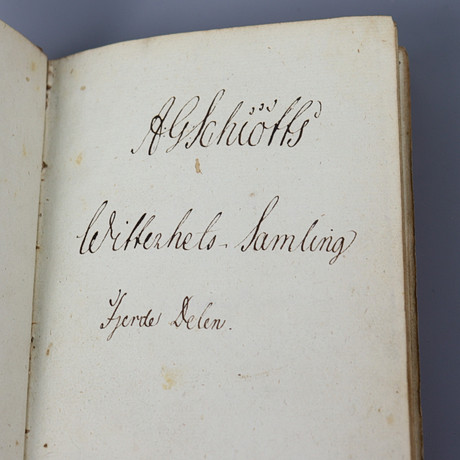 AGSchiötts
Witterhets-Samling
Fjerde Delen.